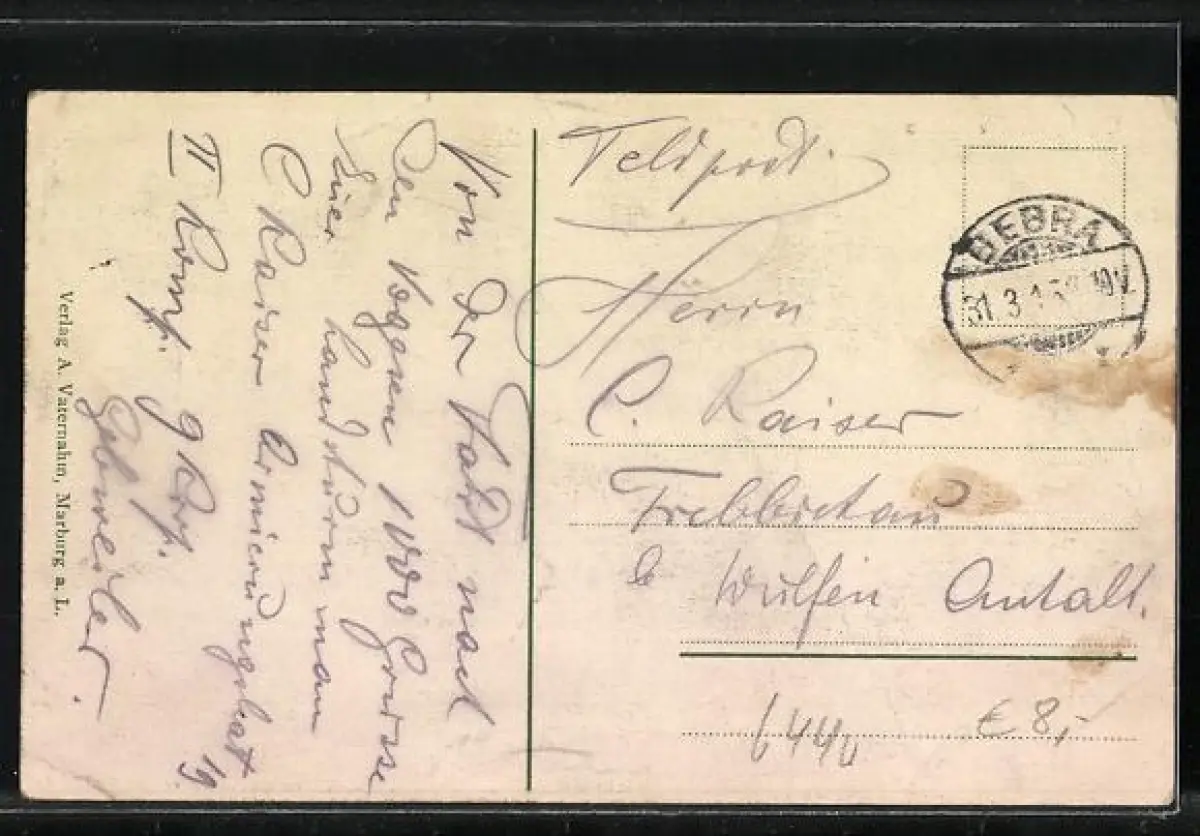 Von der Fahrt nach
den Vogesen 1000 Grüsse
Euer Landsturm man
C Kaiser Armierungsbat 19
II Komp. 9 Krp.
Gebweiler.
Verlag A. Vaternahm, Marburg a. L.
Feldpost.
BEBRA
31.3.
Herrn
C. Kaiser
Trebbichau
b Wulfen Anhalt.
6440
€ 8,-